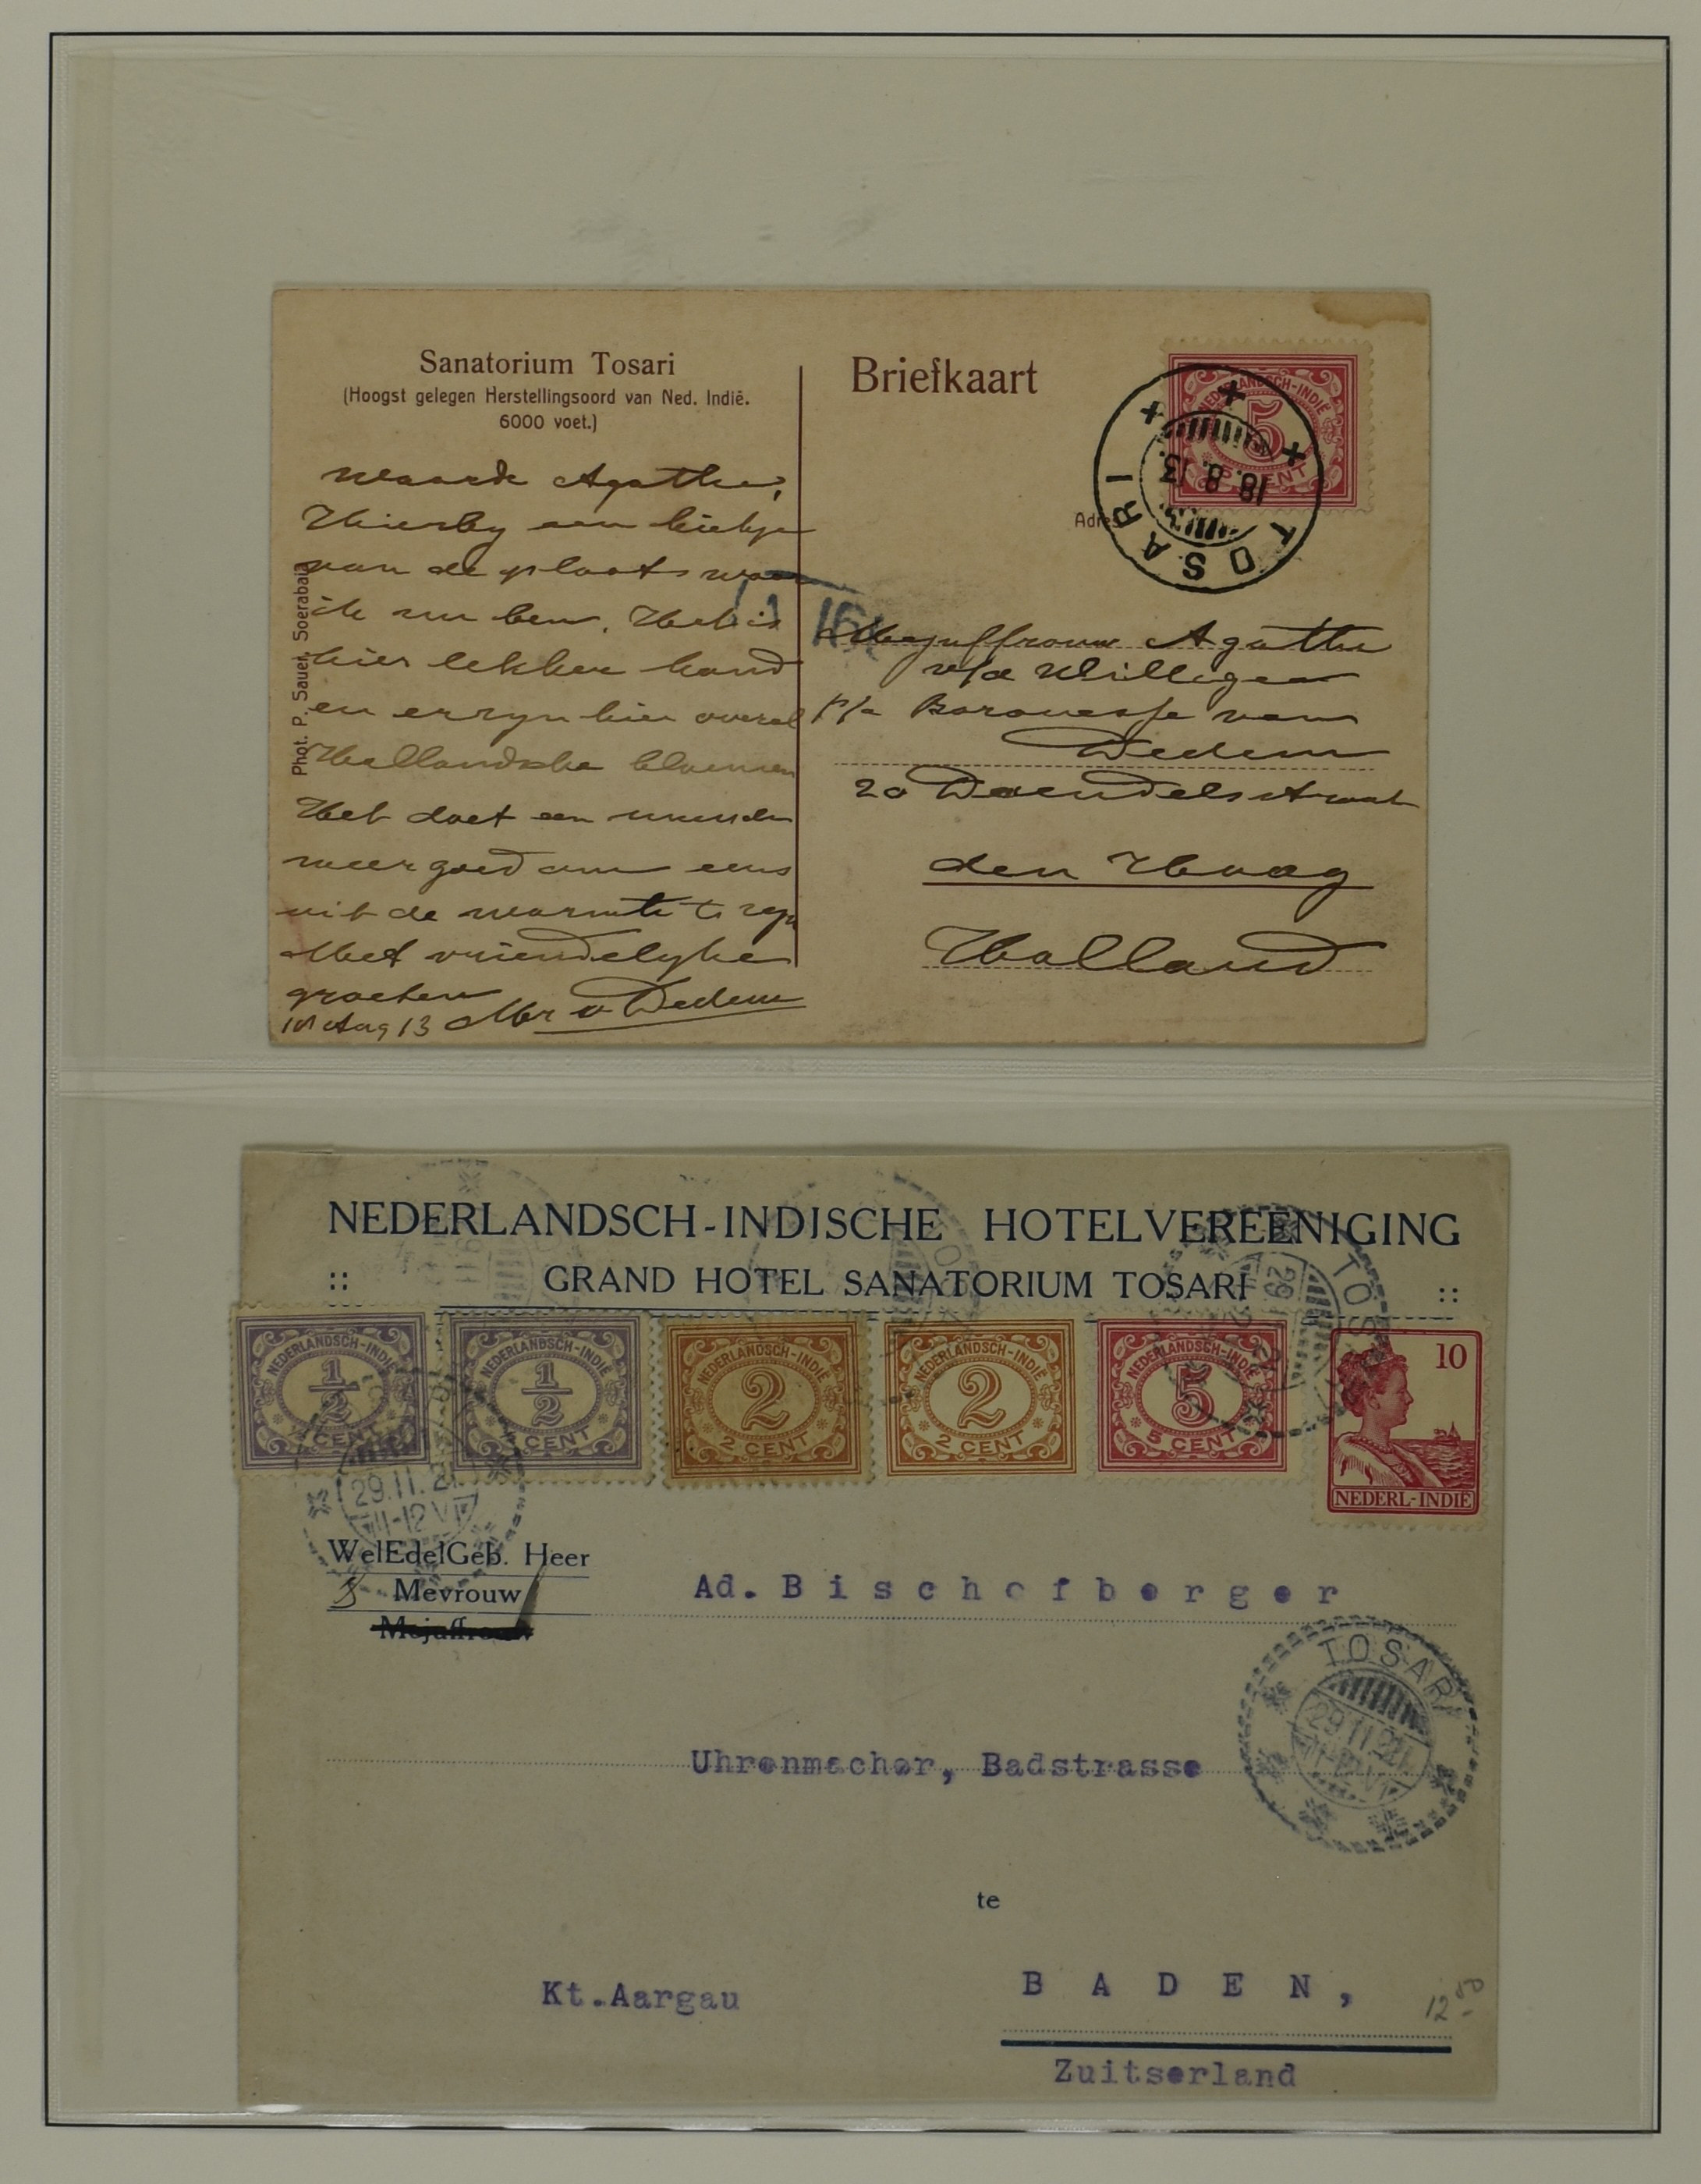 Sanatorium Tosari
(Hoogst gelegen Herstellingsoord van Ned. Indië.
6000 voet.)
Waarde Agathe,
Hierby een kiekje
van de plaats waar
ik nu ben. Het is
hier lekker koud
en er zyn hier overal
Hollandsche bloemen
Het doet een mensch
weer goed om eens
uit de warmte te zyn
Met vriendelyke
groeten
Aug 13 Mevr v Dedem
Phot. P. Sauer, Soerabaia
Briefkaart
NEDERLANDSCH-INDIË
5
CENT
TOSARI
18.8.13.
Adres
Mejuffrouw Agathe
v/d Willigen
p/a Baronesse van
Dedem
20 Daendelsstraat
den Haag
Holland
NEDERLANDSCH-INDISCHE HOTELVEREENIGING
:: GRAND HOTEL SANATORIUM TOSARI ::
NEDERLANDSCH-INDIË 1/2 CENT
NEDERLANDSCH-INDIË 1/2 CENT
NEDERLANDSCH-INDIË 2 2 CENT
NEDERLANDSCH-INDIË 2 2 CENT
NEDERLANDSCH-INDIË 5 5 CENT
10 NEDERL-INDIË
TOS
29.11.21
11-12 V
WelEdelGeb. Heer
Mevrouw
Mejuffrouw
Ad. Bischofberger
TOSARI
29.11.21
11-12 V
Uhrenmacher, Badstrasse
te
Kt.Aargau
BADEN,
12 50
Zuitserland